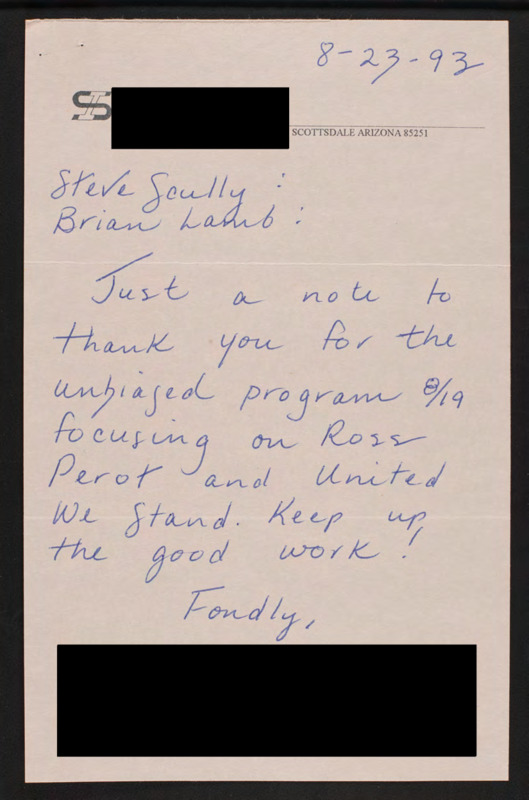 8-23-93
SCOTTSDALE ARIZONA 85251
Steve Scully :
Brian Lamb :
Just a note to
thank you for the
unbiased program 8/19
focusing on Ross
Perot and United
We Stand. Keep up
the good work!
Fondly,